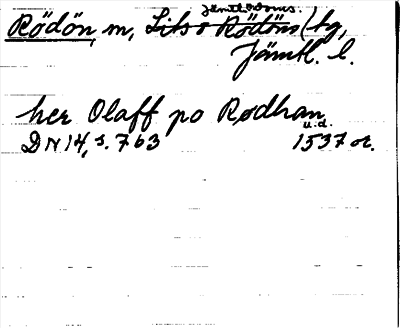 Jämtl. doms.
Rödön, m, Lits o Rödöns tg,
Jämtl. l.
her Olaff po Rødhan
u.d.
DN 14, s. 763 1537 or.